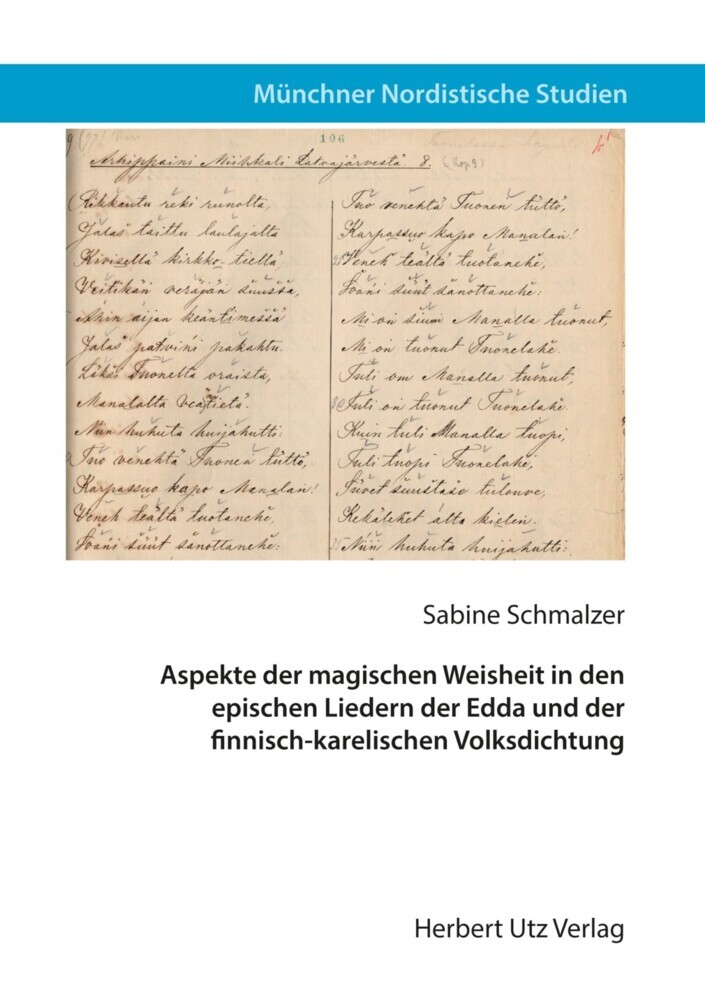 Münchner Nordistische Studien
106
Arhippaini Miihkali Latvajärvestä 8.
Rikkautu reki runolta,
Jalas taittu laulajalta
Kivisellä kirkko-tiellä,
Veitikän veräjän suussa,
Akin äijän keäntimessä
Jalas patvini pakahtu.
Läksi Tuonelta oraista,
Manalalta veätietä.
Niin huhuta huijahutti:
Tuo venehtä Tuonen tüttö,
Karpassuo kapo Manalan!
Veneh teältä tuotanehe,
süüt sanottanehe:
Tuo venehtä Tuonen tüttö,
Karpassuo kapo Manalan!
25 Veneh teältä tuotanehe,
süüt sanottanehe:
Mi on siun Manalla tuonut,
Mi on tuonut Tuonelahe.
Tuli om Manalla tuonut,
30 Tuli on tuonut Tuonelahe.
Kuin tuli Manalla tuopi,
Tuli tuopi Tuonelahe,
tulouve,
Kekälehet alta kielen.
35 Niin huhuta huijahutti:
Sabine Schmalzer
Aspekte der magischen Weisheit in den
epischen Liedern der Edda und der
finnisch-karelischen Volksdichtung
Herbert Utz Verlag